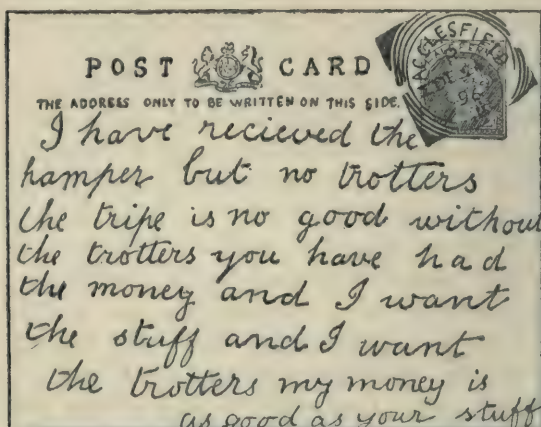 POST CARD
THE ADDRESS ONLY TO BE WRITTEN ON THIS SIDE.
MACCLESFIELD
DE 4
96
I have recieved the
hamper but no trotters
the tripe is no good without
the trotters you have had
the money and I want
the stuff and I want
the trotters my money is
as good as your stuff